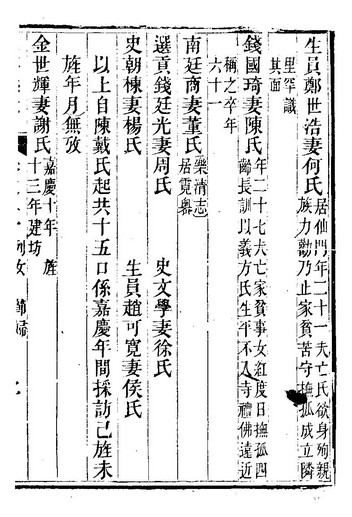 生員鄭世浩妻何氏居仙門年二十一夫亡氏欲身殉親
族力勸乃止家貧苦守撫孤成立隣
里罕識
其面
錢國琦妻陳氏年二十七夫亡家貧事女紅度日撫孤四
齡長訓以義方氏生平不入寺禮佛遠近
稱之卒年
六十一
南廷商妻董氏樂清志
居霓嶴
選貢錢廷光妻周氏 史文學妻徐氏
史朝棟妻楊氏 生員趙可寬妻侯氏
以上自陳戴氏起共十五口係嘉慶年間採訪已旌未
旌年月無攷
金世輝妻謝氏嘉慶十年旌
十三年建坊
列女 節婦